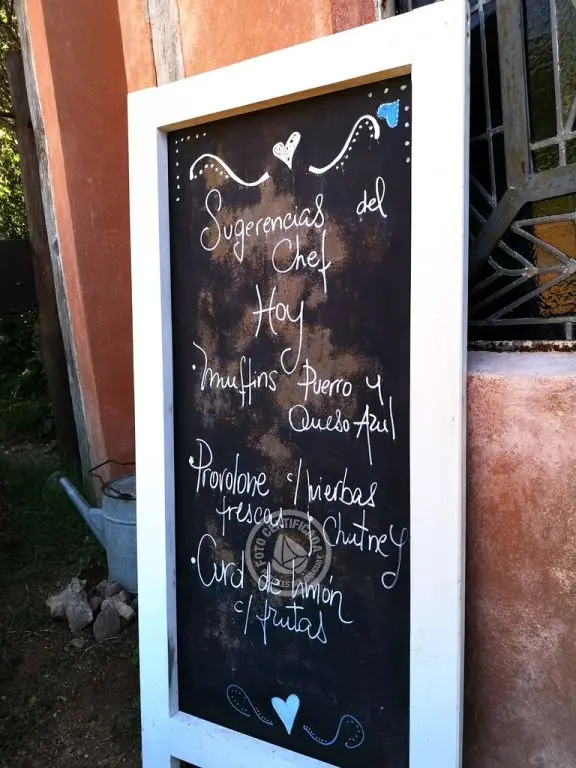 Sugerencias del
Chef
Hoy
• Muffins Puerro y
Queso Azul
• Provolone c/hierbas
frescas y Chutney
• Curd de limón
c/frutas
FOTO CERTIFICADA